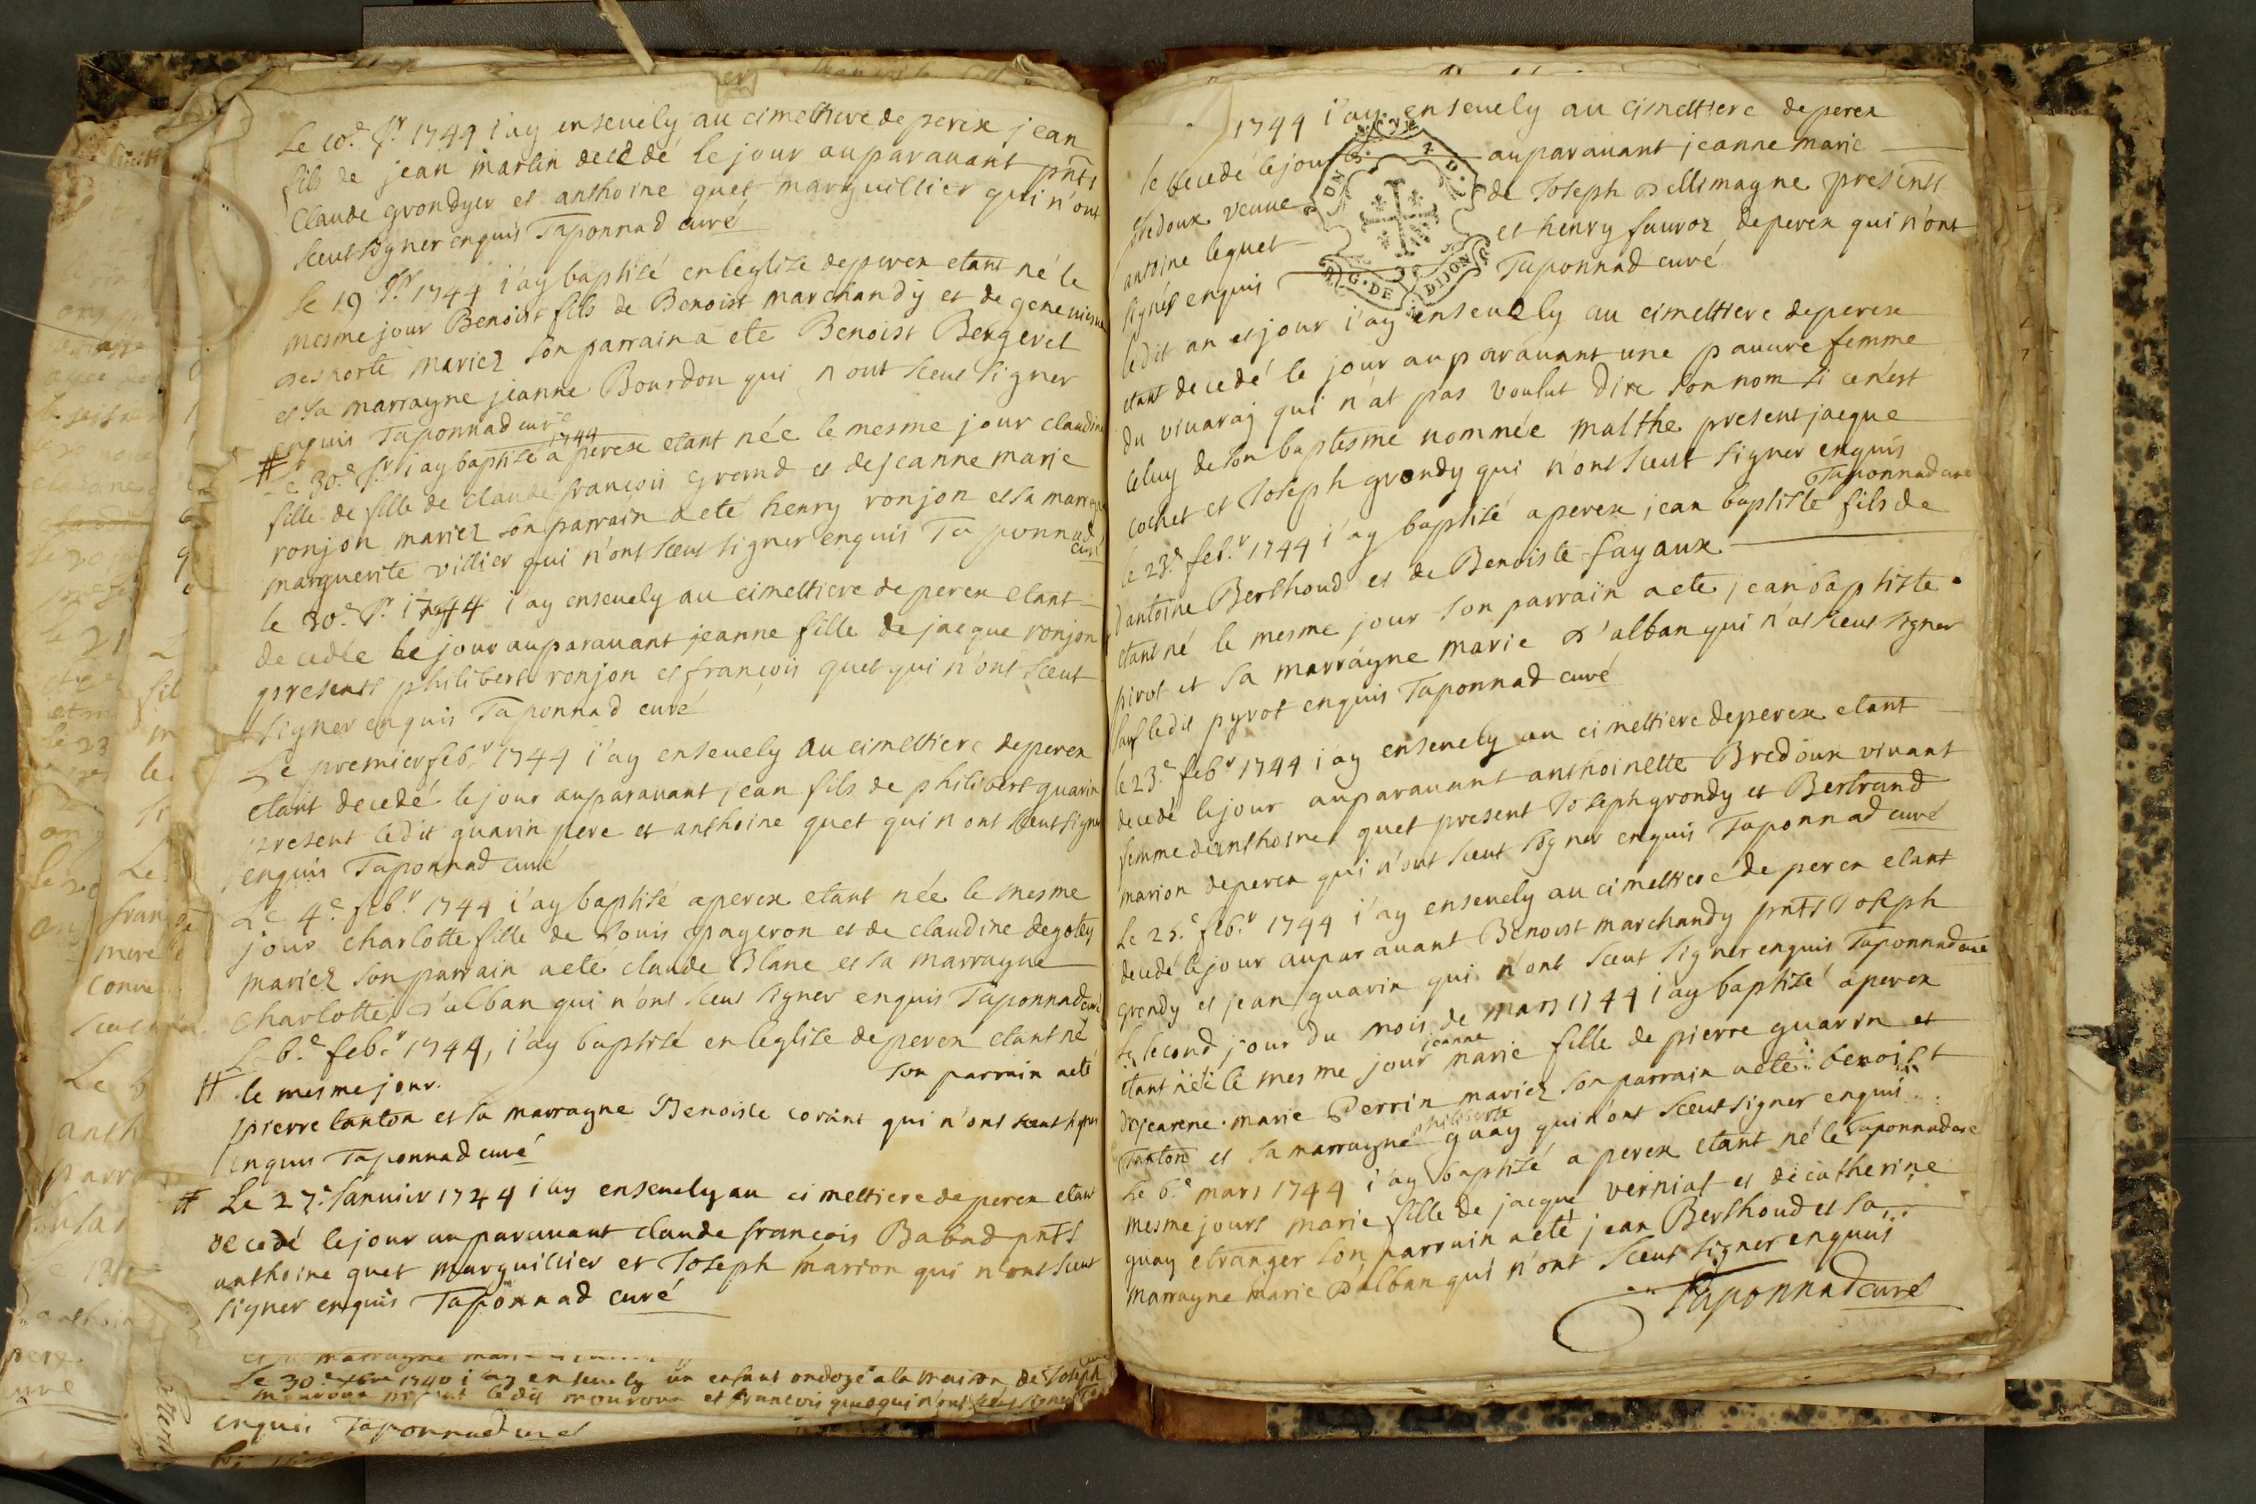 Le 10.e Jr 1744 i'ay enseuely au cimettiere de perex jean
fils de jean martin decedé le jour auparauant pnts
Claude grondyer et anthoine quet marguillier qui n'ont
sceut signer enquis Taponnad curé
Le 19 Jr 1744 i'ay baptisé en leglise de perex etant né le
mesme jour Benoist fils de Benoist marchandy et de geneuieue
desporte mariez son parrain a ete Benoist Bergeret
et sa marrayne jeanne Bourdon qui n'ont sceut signer
enquis Taponnad curé
1744
# Le 30.e Jr i ay baptisé a perex etant née le mesme jour claudine
fille de fille de claude françois grand et de jeanne marie
ronjon mariez son parrain a eté henry ronjon et sa marrayne
marguerite villier qui n'ont sceut signer enquis Taponnad
curé
le 30.e Jr 1744 i'ay enseuely au cimettiere de perex etant
decedée le jour auparauant jeanne fille de jacque ronjon
presents philibert ronjon et françois quet qui n'ont sceut
signer enquis Taponnad curé
Le premier feb.r 1744 i'ay enseuely au cimettiere de perex
etant decedé le jour auparauant jean fils de philibert guarin
present ledit guarin pere et anthoine quet qui n'ont sceut signer
enquis Taponnad curé
Le 4.e feb.r 1744 i'ay baptisé a perex etant née le mesme
jour charlotte fille de Louis pageron et de claudine degoley
mariez son parrain a eté claude Blanc et sa marrayne
charlotte d'alban qui n'ont sceut signer enquis Taponnad curé
Le 6.e feb.r 1744, i'ay baptisé en leglise de perex etant né
# le mesme jour. son parrain a eté
pierre tanton et sa marrayne Benoiste corant qui n'ont sceut signer
enquis Taponnad curé
# Le 27.e Januier 1744 i'ay enseuely au cimettiere de perex etant
decedé le jour auparauant claude françois Babad pnts
anthoine quet marguillier et Joseph marion qui n'ont sceut
signer enquis Taponnad curé
Le 30.e 1740 i'ay enseuely un enfant ondoyé a la maison de Joseph
ledit mouroux et françois qui n'ont
enquis Taponnad curé
1744 i'ay enseuely au cimettiere de perex
le decedé le jour auparauant jeanne marie
predoux veuue de Joseph Dellimagne presents
antoine le quet et henry fauroz de perex qui n'ont
signés enquis Taponnad curé
G. DE DIJON
ledit an et jour i'ay enseuely au cimettiere de perex
etant decedé le jour auparauant une pauure femme
du viuaraj qui n'at pas voulut dire son nom si ce n'est
celuy de son baptesme nommée malthe present jacque
cochet et Joseph grondy qui n'ont sceut signer enquis
Taponnad curé
le 23.e feb.r 1744 i'ay baptisé a perex jean baptiste fils de
d'antoine Berthoud et de Benoiste fayaux
etant né le mesme jour son parrain a eté jean baptiste
pirot et sa marrayne marie d'alban qui n'at sceut signer
sauf ledit pyrot enquis Taponnad curé
le 23.e feb.r 1744 i ay enseuely au cimettiere de perex etant
decedé le jour auparauant anthoinette Bredoux viuant
femme d'anthoine quet present Joseph grondy et Bertrand
marion de perex qui n'ont sceut signer enquis Taponnad curé
Le 25.e feb.r 1744 i'ay enseuely au cimettiere de perex etant
decedé le jour auparauant Benoist marchandy pnts Joseph
grondy et jean guarin qui n'ont sceut signer enquis Taponnad curé
Le second jour du mois de mars 1744 i'ay baptisé a perex
jeanne
etant née le mesme jour marie fille de pierre guarin et
de jeanne marie Perrin mariez son parrain a eté benoist
philiberte
Tanton et sa marrayne guay qui n'ont sceut signer enquis
Taponnad curé
Le 6.e mars 1744 i'ay baptisé a perex etant né le
mesme jours marie fille de jacque verniat et de catherine
guay etranger son parrain a eté jean Berthoud et sa
marrayne marie d'alban qui n'ont sceut signer enquis
Taponnad curé